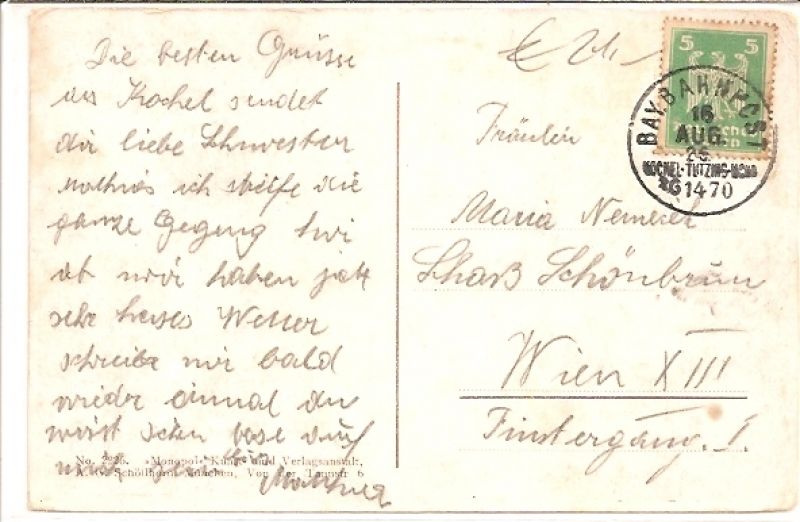 Die besten Grüsse
aus Kochel sendet
dir liebe Schwester
ich streife die
ganze Gegeng
ab wir haben jetzt
sehr heises Wetter
schreibe mir bald
wieder einmal du
wirst schon böse auf
mich sein
No. 2226. »Monopol« Kunst- und Verlagsanstalt,
A. G. Schöllhorn München, Von der Tannstr 6
5 5
BAY. BAHNPOST
16
AUG.
25
KOCHEL-TUTZING-MCHN
ZG 1470
Fräulein
Maria
Schloß Schönbrun
Wien XIII
Finstergang. I.